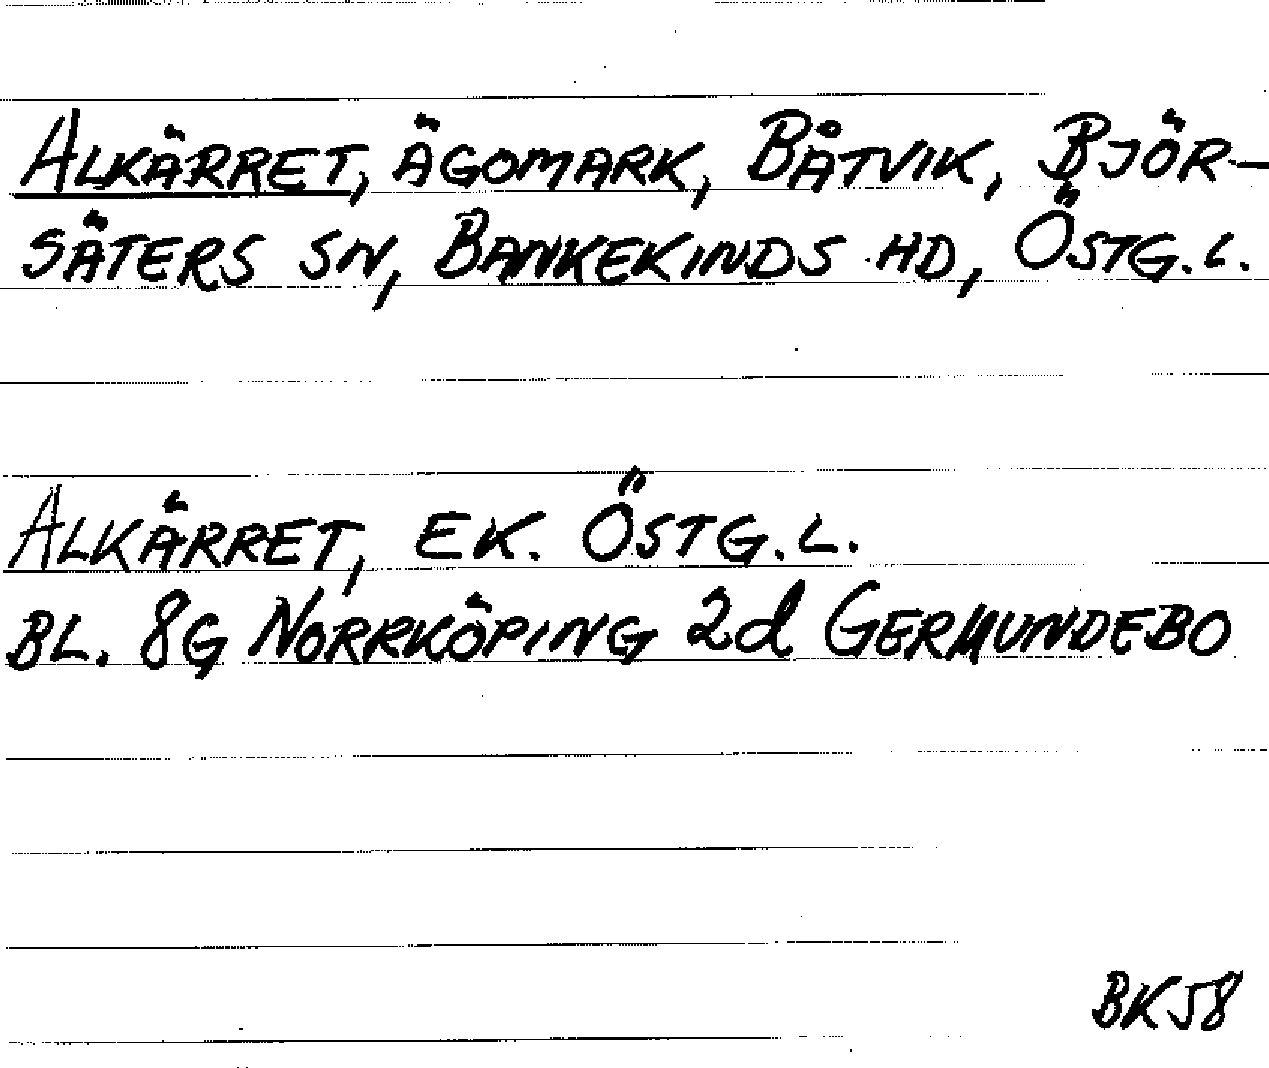 ALKÄRRET, ÄGOMARK, BÅTVIK, BJÖR-
SÄTERS SN, BANKEKINDS HD, ÖSTG. L.
ALKÄRRET, EK. ÖSTG. L.
BL. 8G NORRKÖPING 2d GERMUNDEBO
BK58